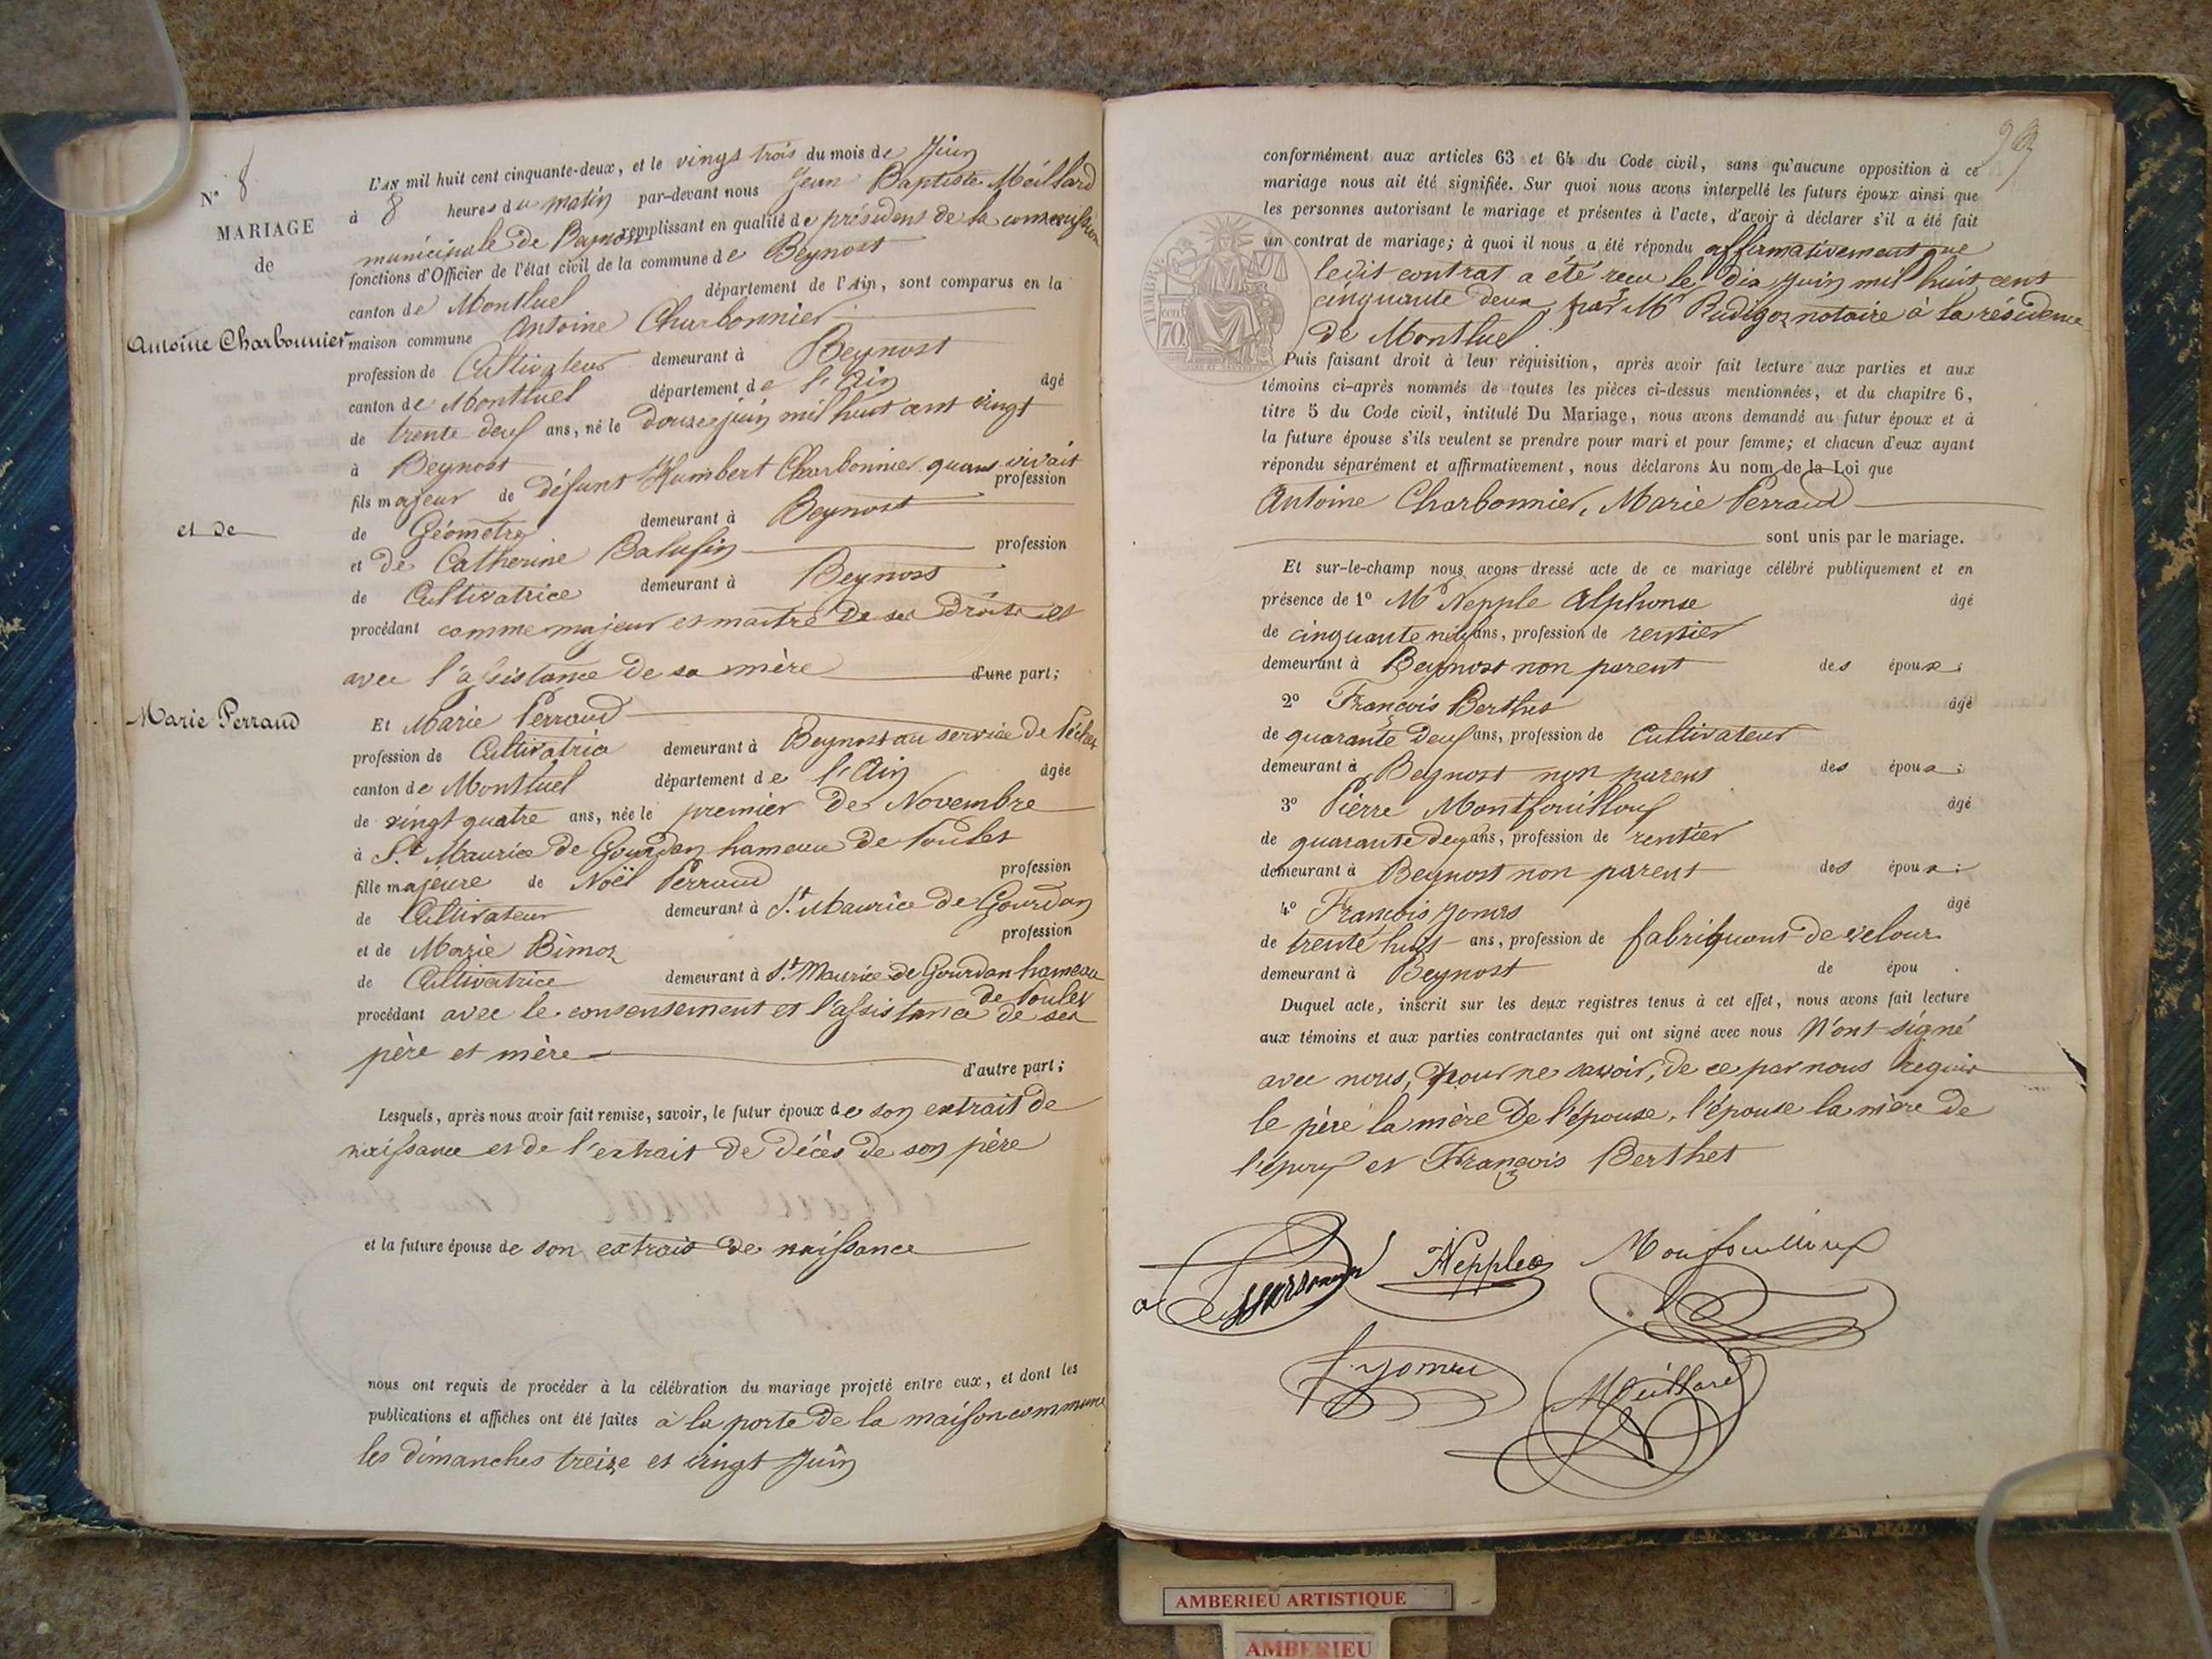 N° 8
MARIAGE
de
Antoine Charbonnier
et de
Marie Perraud
L'AN mil huit cent cinquante-deux, et le vingt trois du mois de Juin
à 8 heures du matin par-devant nous Jean Baptiste Meillard
remplissant en qualité de président de la commission
municipale de Beynost
fonctions d'Officier de l'état civil de la commune de Beynost
canton de Montluel département de l'Ain, sont comparus en la
maison commune Antoine Charbonnier
profession de Cultivateur demeurant à Beynost
canton de Montluel département de l'Ain âgé
de trente deux ans, né le Douze juin mil huit cent vingt
à Beynost
fils majeur de défunt Humbert Charbonnier quand vivait profession
de Géomètre demeurant à Beynost
et de Catherine Balufin profession
de Cultivatrice demeurant à Beynost
procédant comme majeur et maitre de ses droits et
avec l'assistance de sa mère d'une part;
Et Marie Perraud
profession de Cultivatrice demeurant à Beynost au service de
canton de Montluel département de l'Ain âgée
de vingt quatre ans, née le premier de Novembre
à St Maurice de Gourdan hameau de Poulet
fille majeure de Noël Perraud profession
de Cultivateur demeurant à St Maurice de Gourdan
et de Marie Bimoz profession
de Cultivatrice demeurant à St Maurice de Gourdan hameau
de Poulet
procédant avec le consensement et l'assistance de ses
père et mère d'autre part;
Lesquels, après nous avoir fait remise, savoir, le futur époux de son extrait de
naissance et de l'extrait de décès de son père
et la future épouse de son extrait de naissance
nous ont requis de procéder à la célébration du mariage projeté entre eux, et dont les
publications et affiches ont été faites à la porte de la maison commune
les dimanches treize et vingt Juin
conformément aux articles 63 et 64 du Code civil, sans qu'aucune opposition à ce
mariage nous ait été signifiée. Sur quoi nous avons interpellé les futurs époux ainsi que
les personnes autorisant le mariage et présentes à l'acte, d'avoir à déclarer s'il a été fait
un contrat de mariage; à quoi il nous a été répondu affirmativement que
ledit contrat a été reçu le dix Juin mil huit cent
cinquante deux, par Me Rudigoz notaire à la résidence
de Montluel
TIMBRE
70
Puis faisant droit à leur réquisition, après avoir fait lecture aux parties et aux
témoins ci-après nommés de toutes les pièces ci-dessus mentionnées, et du chapitre 6,
titre 5 du Code civil, intitulé Du Mariage, nous avons demandé au futur époux et à
la future épouse s'ils veulent se prendre pour mari et pour femme; et chacun d'eux ayant
répondu séparément et affirmativement, nous déclarons Au nom de la Loi que
Antoine Charbonnier, Marie Perraud
sont unis par le mariage.
Et sur-le-champ nous avons dressé acte de ce mariage célébré publiquement et en
présence de 1° Mr Nepple Alphonse âgé
de cinquante ans, profession de rentier
demeurant à Beynost non parent des époux;
2° François Berthet âgé
de quarante deux ans, profession de Cultivateur
demeurant à Beynost non parent des époux;
3° Pierre Montfouilloux âgé
de quarante deux ans, profession de rentier
demeurant à Beynost non parent des époux;
4° François âgé
de trente huit ans, profession de fabriquant de velour
demeurant à Beynost de épou .
Duquel acte, inscrit sur les deux registres tenus à cet effet, nous avons fait lecture
aux témoins et aux parties contractantes qui ont signé avec nous N'ont signé
avec nous, pour ne savoir, de ce par nous requis
le père la mère de l'épouse, l'épouse la mère de
l'époux et François Berthet
a Charbonnier Nepple Monfouilloux
Meillard
AMBERIEU ARTISTIQUE
AMBERIEU